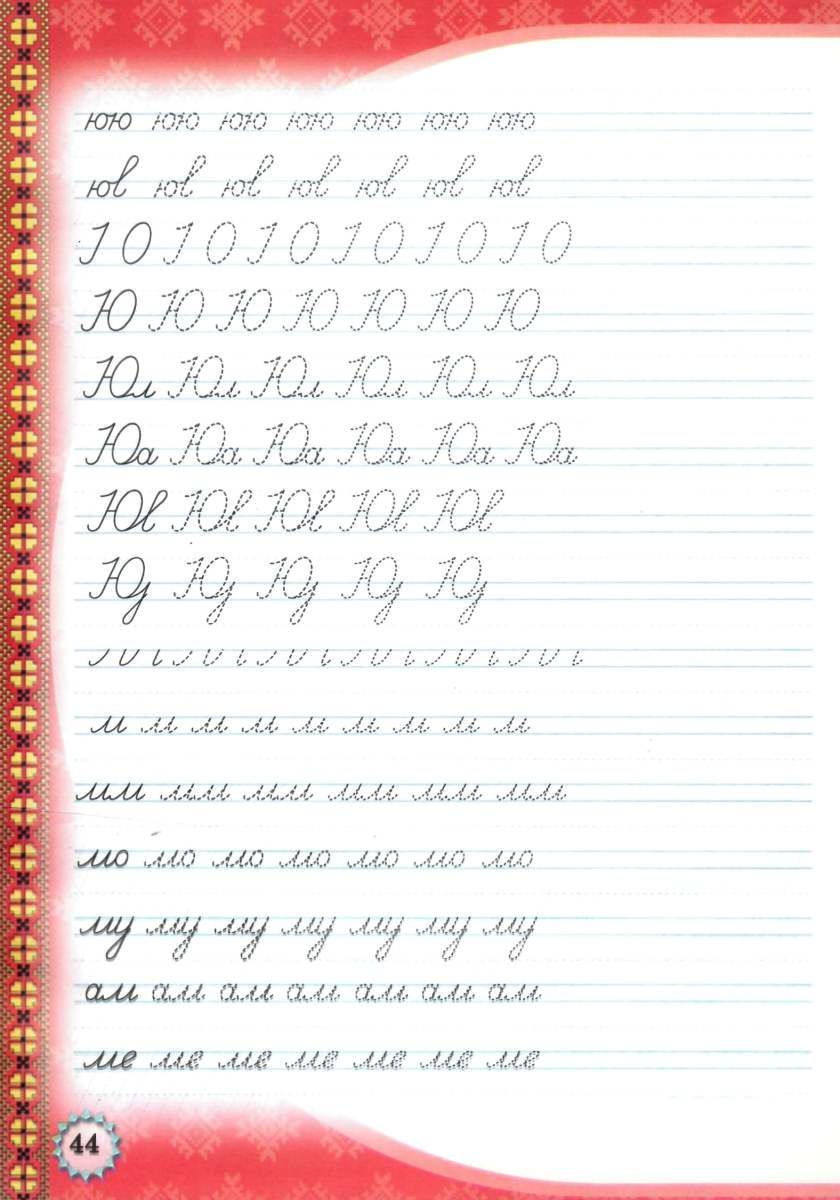 юю юю юю юю юю юю юю
юв юв юв юв юв юв юв
1 О 1 О 1 О 1 О 1 О 1 О
Ю Ю Ю Ю Ю Ю Ю
Юл Юл Юл Юл Юл Юл
Юа Юа Юа Юа Юа Юа
Юв Юв Юв Юв Юв
м м м м м м м м м
мм мм мм мм мм мм
мо мо мо мо мо мо мо
му му му му му му му
ам ам ам ам ам ам ам
ме ме ме ме ме ме ме
44